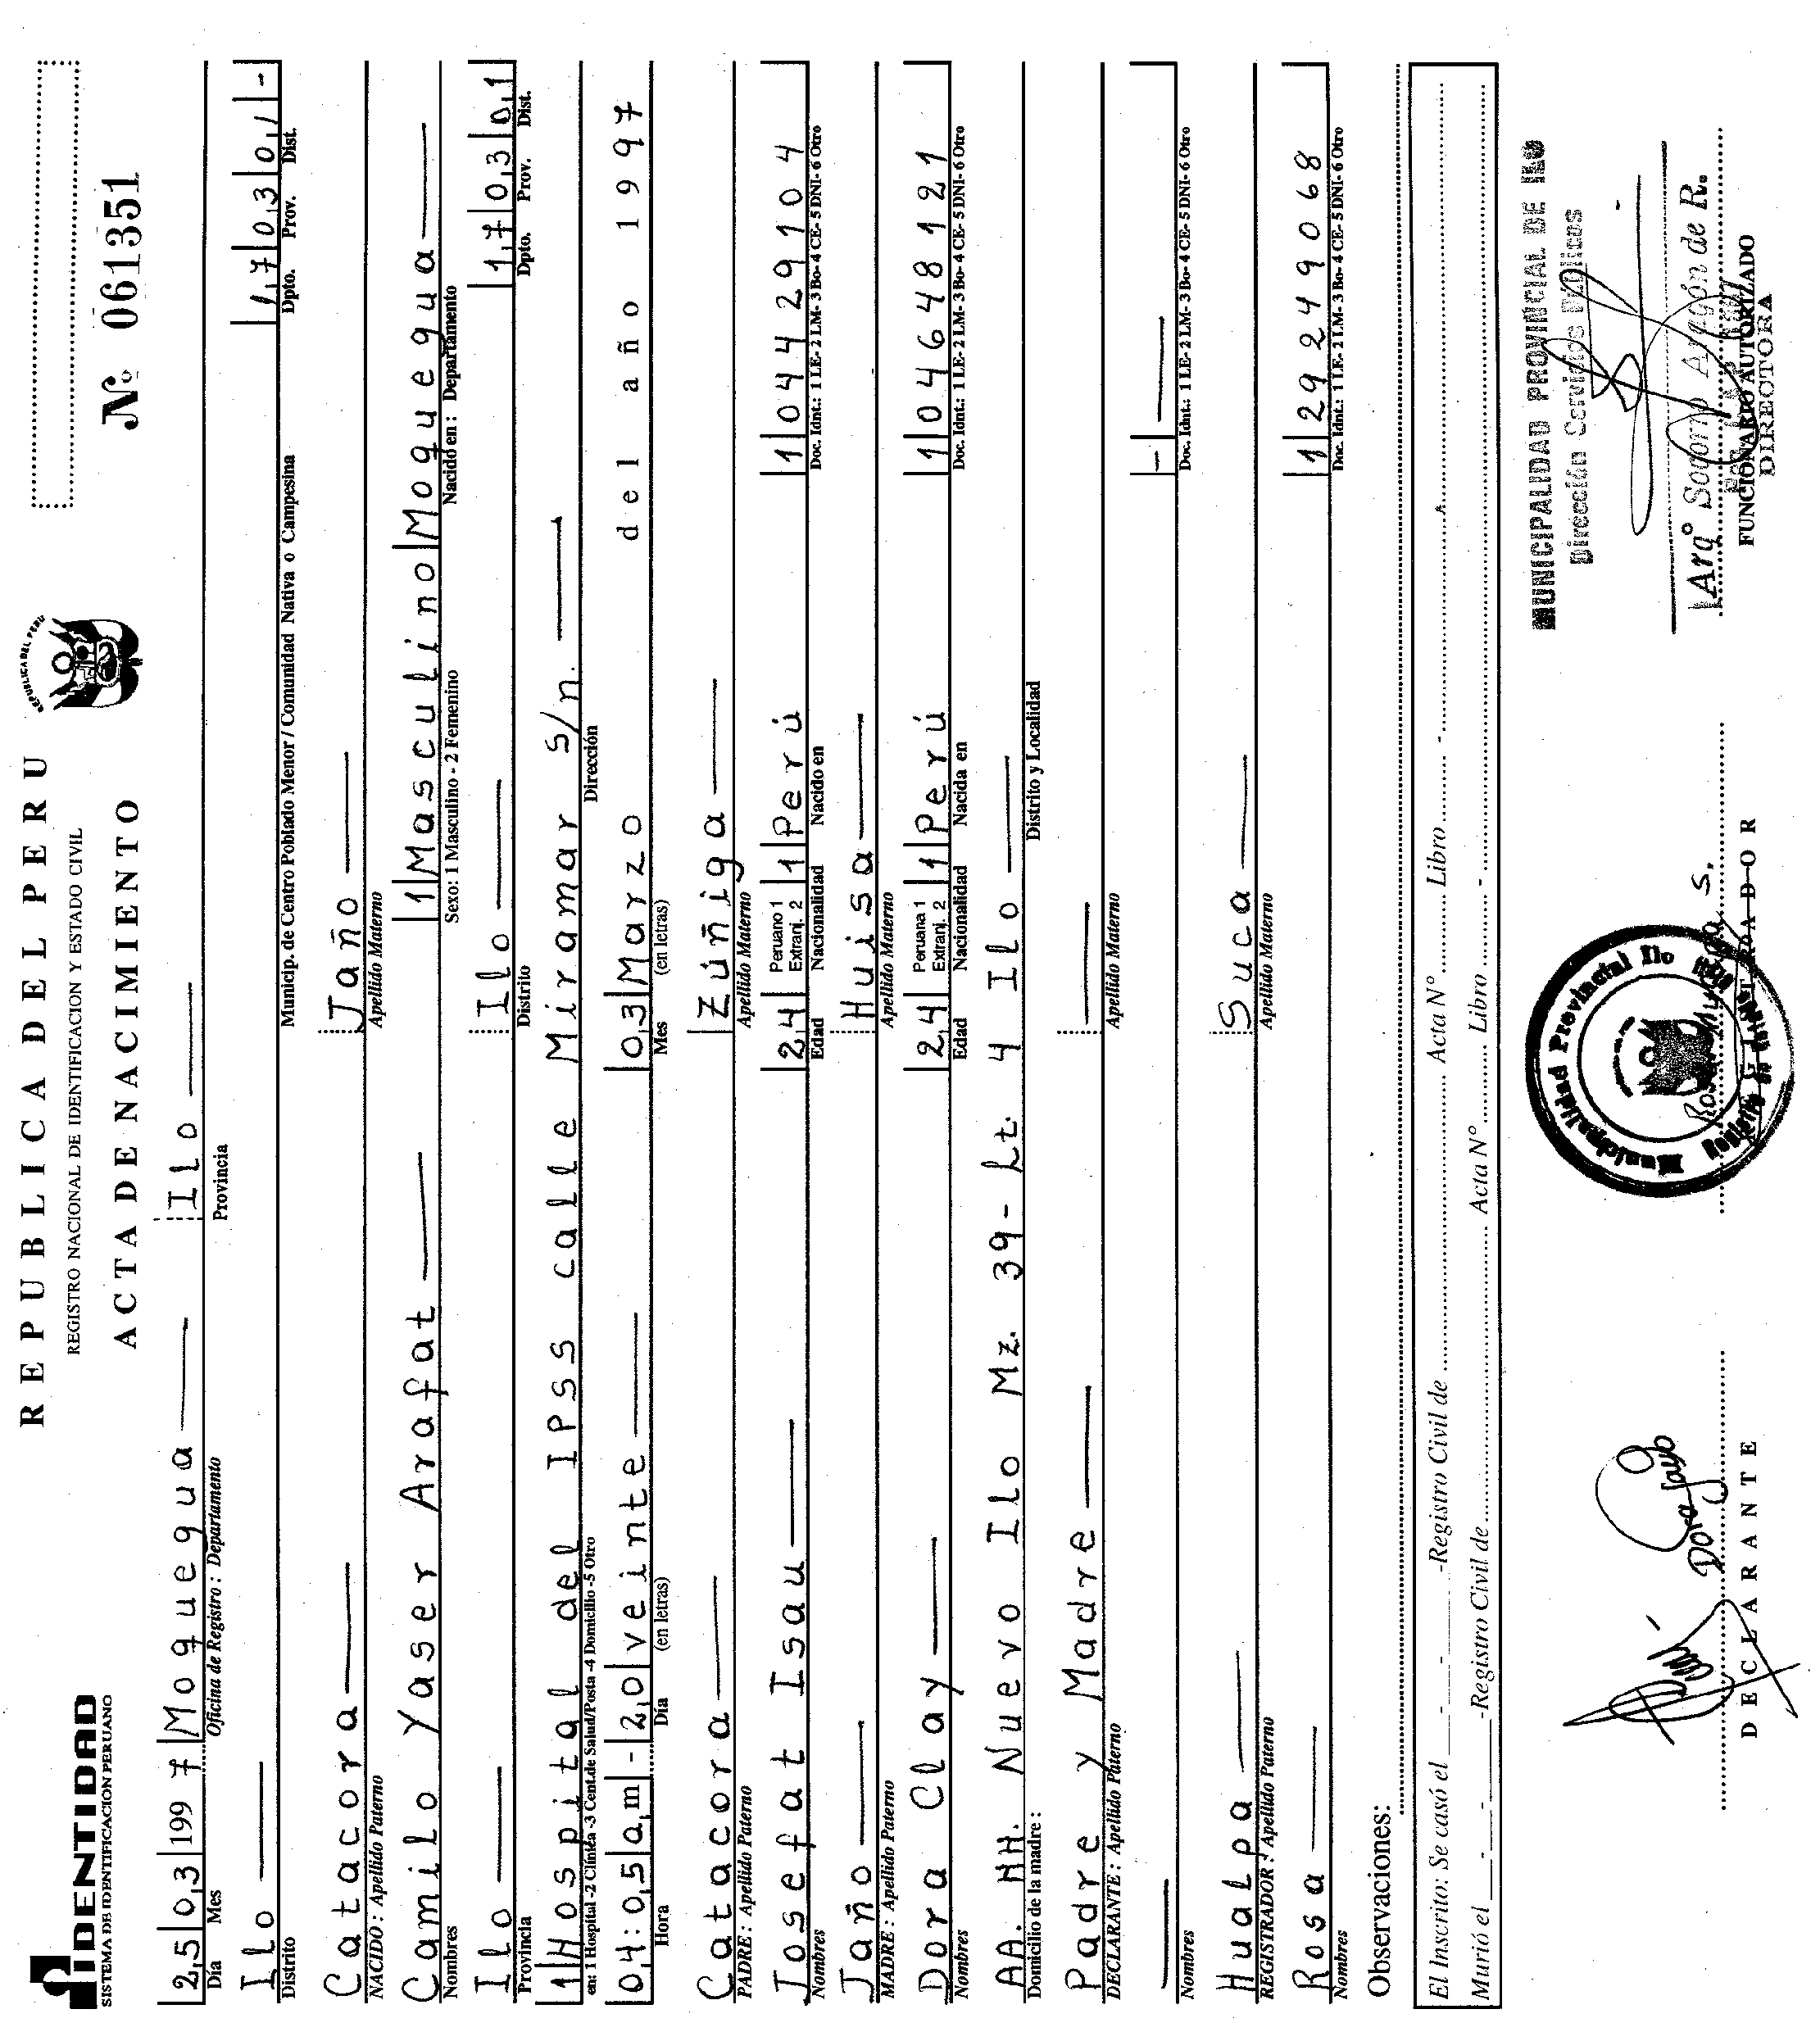 IDENTIDAD
SISTEMA DE IDENTIFICACION PERUANO
REPUBLICA DEL PERU
REPUBLICA DEL PERU
REGISTRO NACIONAL DE IDENTIFICACION Y ESTADO CIVIL
ACTA DE NACIMIENTO
Nº 061351
25 03 1997 Moquegua Ilo
Día Mes Oficina de Registro : Departamento Provincia
Ilo 17 03 01 -
Distrito Municip. de Centro Poblado Menor / Comunidad Nativa o Campesina Dpto. Prov. Dist.
Catacora Jaño
NACIDO : Apellido Paterno Apellido Materno
Camilo Yaser Arafat 1 Masculino Moquegua
Nombres Sexo: 1 Masculino - 2 Femenino Nacido en : Departamento
Ilo Ilo 17 03 01
Provincia Distrito Dpto. Prov. Dist.
1 Hospital del IPSS calle Miramar s/n.
en: 1 Hospital -2 Clínica -3 Cent.de Salud/Posta -4 Domicilio -5 Otro Dirección
04:05 am - 20 veinte 03 Marzo del año 1997
Hora Día (en letras) Mes (en letras)
Catacora Zúñiga
PADRE : Apellido Paterno Apellido Materno
Josefat Isau 24 Peruano 1 Extranj. 2 1 Perú 1 04429104
Nombres Edad Nacionalidad Nacido en Doc. Idnt.: 1 LE- 2 LM- 3 Bo- 4 CE- 5 DNI- 6 Otro
Jaño Huisa
MADRE : Apellido Paterno Apellido Materno
Dora Clay 24 Peruana 1 Extranj. 2 1 Perú 1 04648121
Nombres Edad Nacionalidad Nacida en Doc. Idnt.: 1 LE- 2 LM- 3 Bo- 4 CE- 5 DNI- 6 Otro
AA. HH. Nuevo Ilo Mz. 39- Lt. 4 Ilo
Domicilio de la madre : Distrito y Localidad
Padre y Madre
DECLARANTE : Apellido Paterno Apellido Materno
-
Nombres Doc. Idnt.: 1 LE- 2 LM- 3 Bo- 4 CE- 5 DNI- 6 Otro
Hualpa Suca
REGISTRADOR : Apellido Paterno Apellido Materno
Rosa 1 29249068
Nombres Doc. Idnt.: 1 LE- 2 LM- 3 Bo- 4 CE- 5 DNI- 6 Otro
Observaciones:
El Inscrito: Se casó el - - -Registro Civil de Acta N° Libro -
Murió el - - -Registro Civil de Acta N° Libro -
MUNICIPALIDAD PROVINCIAL DE ILO
Dirección Servicios Públicos
Municipalidad Provincial Ilo
Dora Jayo
Arqº Socorro Aragón de R.
DECLARANTE REGISTRADOR FUNCIONARIO AUTORIZADO
DIRECTORA